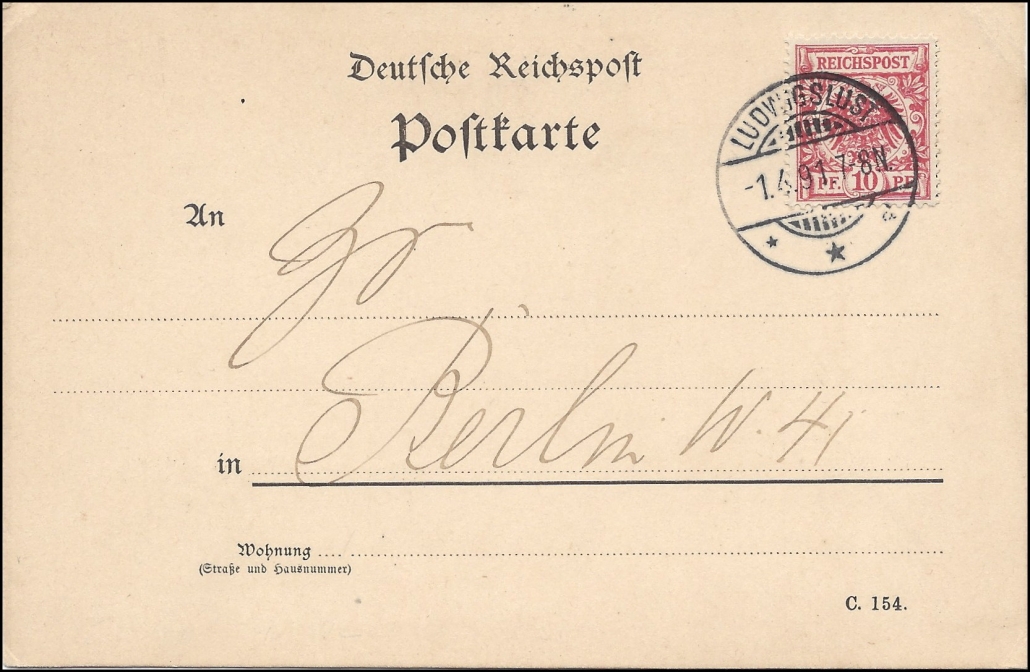 Deutsche Reichspost
Postkarte
REICHSPOST
PF. 10 PF.
LUDWIGSLUST
-1.4.91.7-8N.
* * a
An
in Berlin W. 41
Wohnung
(Straße und Hausnummer)
C. 154.